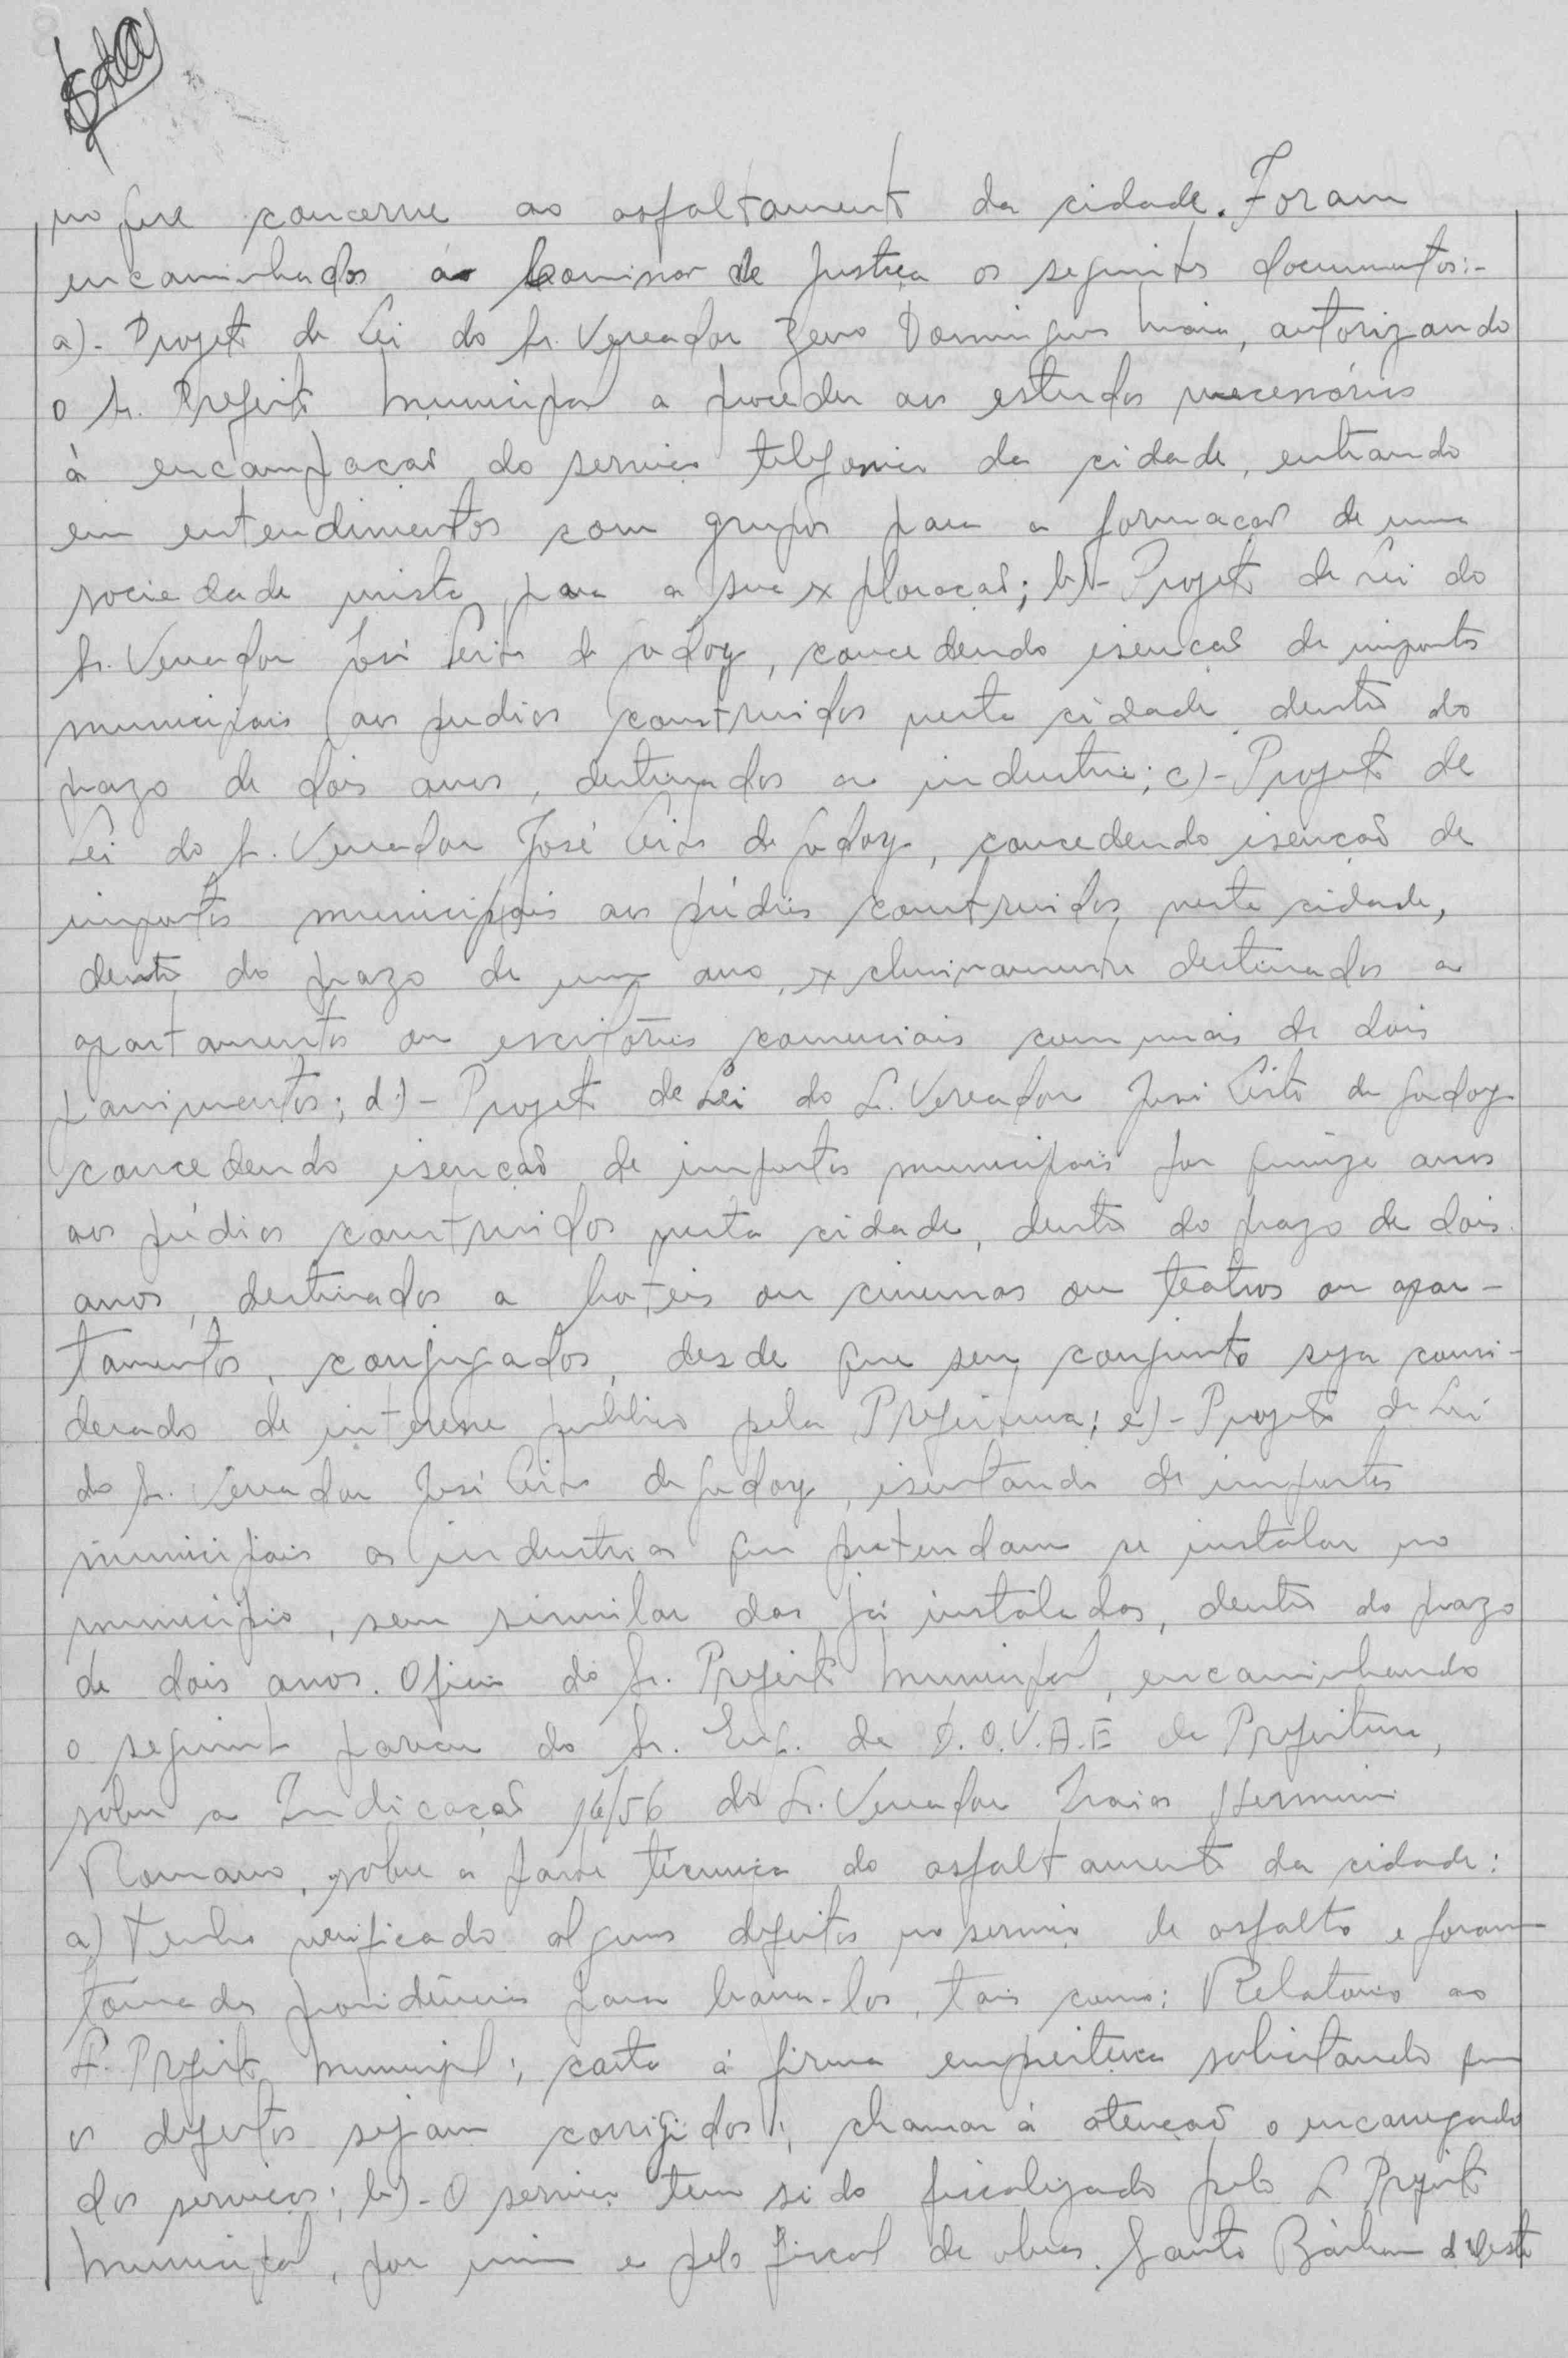 no que concerne ao asfaltamento da cidade. Foram
encaminhados á Comissão de Justiça os seguintes documentos:-
a)- Projeto de Lei do Sr. Vereador Zeno Domingues Maia, autorizando
o Sr. Prefeito Municipal a proceder aos estudos necessários
à encampação do serviço telefonico da cidade, entrando
em entendimentos com grupos para a formação de uma
sociedade mista para a sua exploração; b)- Projeto de Lei do
Sr. Vereador José de Godoy, concedendo isenção de impostos
municipais aos predios construidos nesta cidade dentro do
prazo de dois anos, destinados a industria; c)- Projeto de
Lei do Sr. Vereador José de Godoy, concedendo isenção de
impostos municipais aos prédios construidos, nesta cidade,
dentro do prazo de um ano, exclusivamente destinados a
apartamentos ou escritórios comerciais com mais de dois
pavimentos; d)- Projeto de Lei do Sr. Vereador José de Godoy
concedendo isenção de impostos municipais por quinze anos
aos prédios construidos nesta cidade, dentro do prazo de dois
anos, destinados a hoteis ou cinemas ou teatros ou apar-
tamentos, conjugados, desde que seu conjunto seja consi-
derado de interesse publico pela Prefeitura; e)- Projeto de Lei
do Sr. Vereador José de Godoy, isentando de impostos
municipais as industrias que pretendam se instalar no
município, sem similar das já instaladas, dentro do prazo
de dois anos. Oficio do Sr. Prefeito Municipal, encaminhando
o seguinte parecer do Sr. Eng. da D.O.V.A.E da Prefeitura,
sobre a Indicação 16/56 do Sr. Vereador
Romano, sobre a parte técnica do asfaltamento da cidade:
a) Tenho verificado alguns defeitos no serviço de asfalto e foram
tomadas providências para tais como: Relatorio ao
Sr. Prefeito Municipal; carta á firma empreiteira solicitando que
os defeitos sejam corrigidos; chamar à atenção o encarregado
dos serviços; b)- O serviço tem sido fiscalizado pelo Sr Prefeito
Municipal, por mim e pelo fiscal de obras. Santa Bárbara d'Oeste